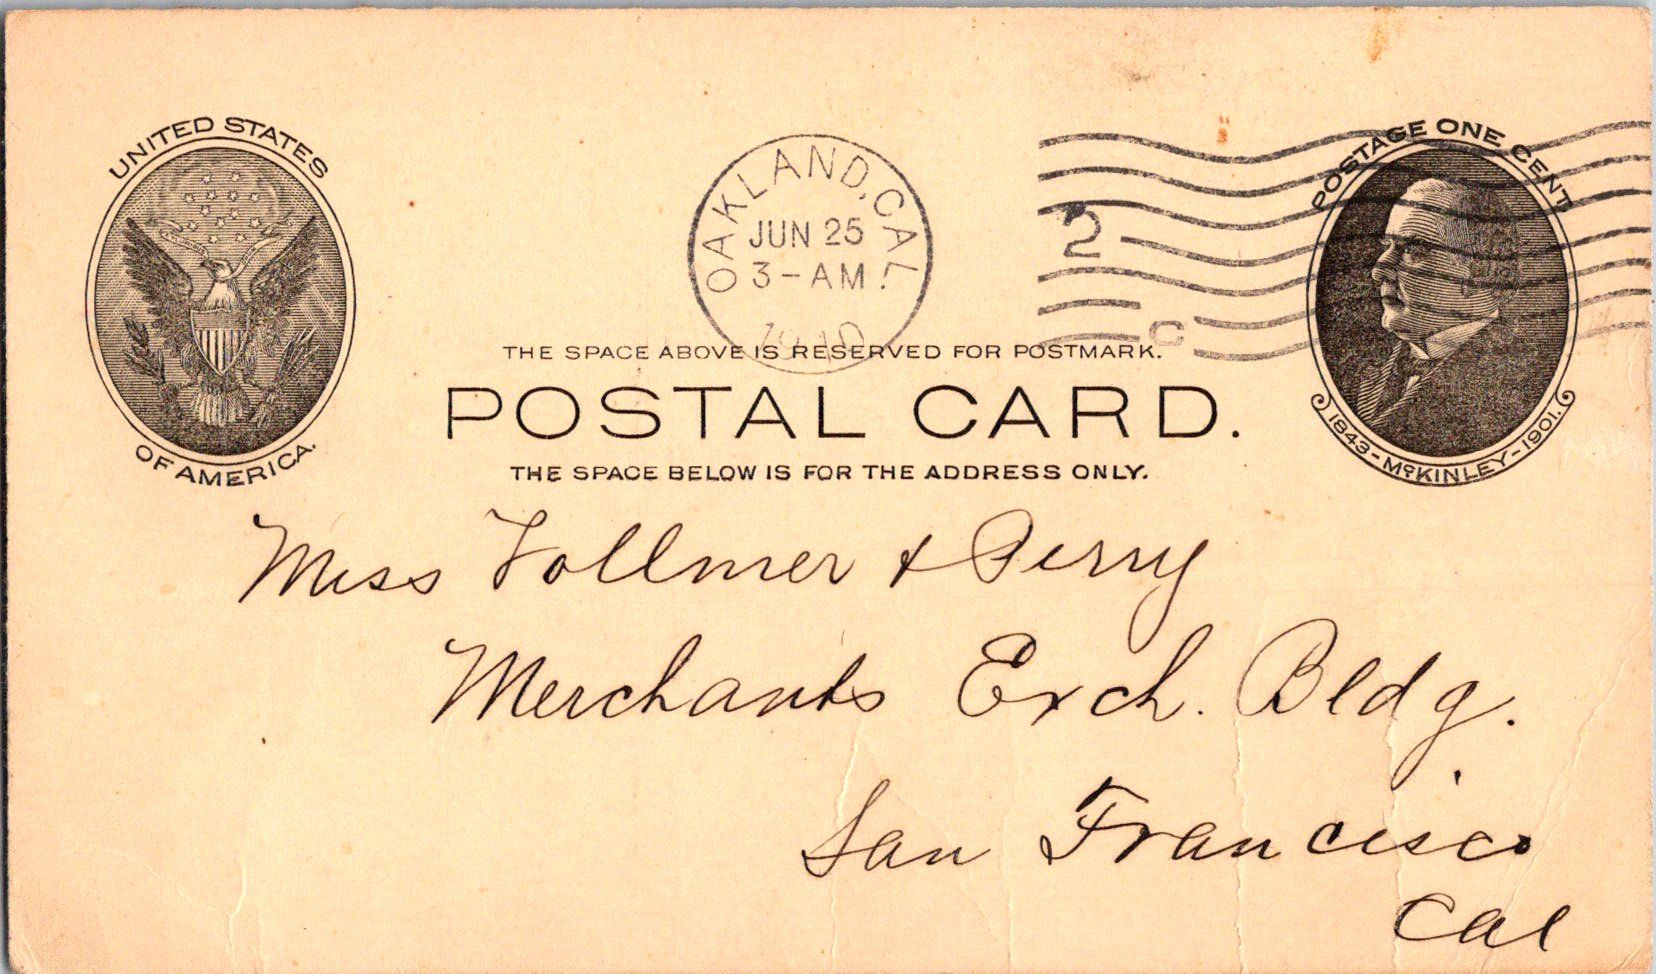 UNITED STATES
OF AMERICA.
OAKLAND, CAL.
JUN 25
3-AM
2
C
POSTAGE ONE CENT
1843-McKINLEY-1901.
THE SPACE ABOVE IS RESERVED FOR POSTMARK.
POSTAL CARD.
THE SPACE BELOW IS FOR THE ADDRESS ONLY.
Miss Vollmer & Perry
Merchants Exch. Bldg.
San Francisco
Cal